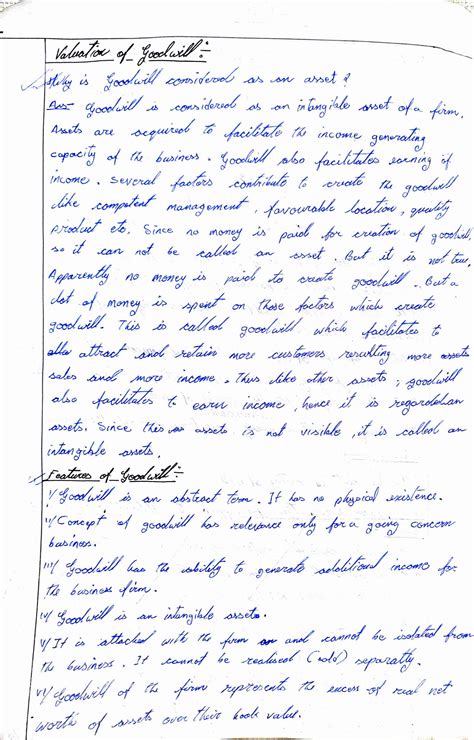 Valuation of Goodwill :-
Why is Goodwill considered as an asset ?
Ans- Goodwill is considered as an intangible asset of a firm.
Assets are acquired to facilitate the income generating
capacity of the business. Goodwill also facilitates earning of
income. Several factors contribute to create the goodwill
like competent management, favourable location, quality
product etc. Since no money is paid for creation of goodwill,
so it can not be called an asset. But it is not true.
Apparently no money is paid to create goodwill. But a
lot of money is spent on those factors which create
goodwill. This is called goodwill which facilitates to
attract and retain more customers resulting more assets
sales and more income. Thus like other assets, goodwill
also facilitates to earn income, hence it is regarded an
assets. Since this assets is not visible, it is called an
intangible assets.
Features of Goodwill :-
i/ Goodwill is an abstract term. It has no physical existence.
ii/ Concept of goodwill has relevance only for a going concern
business.
iii/ Goodwill has the ability to generate additional income for
the business firm.
iv/ Goodwill is an intangible assets.
v/ It is attached with the firm and cannot be isolated from
the business. It cannot be realised (sold) separatly.
vi/ Goodwill of the firm represents the excess of real net
worth of assets over their book value.